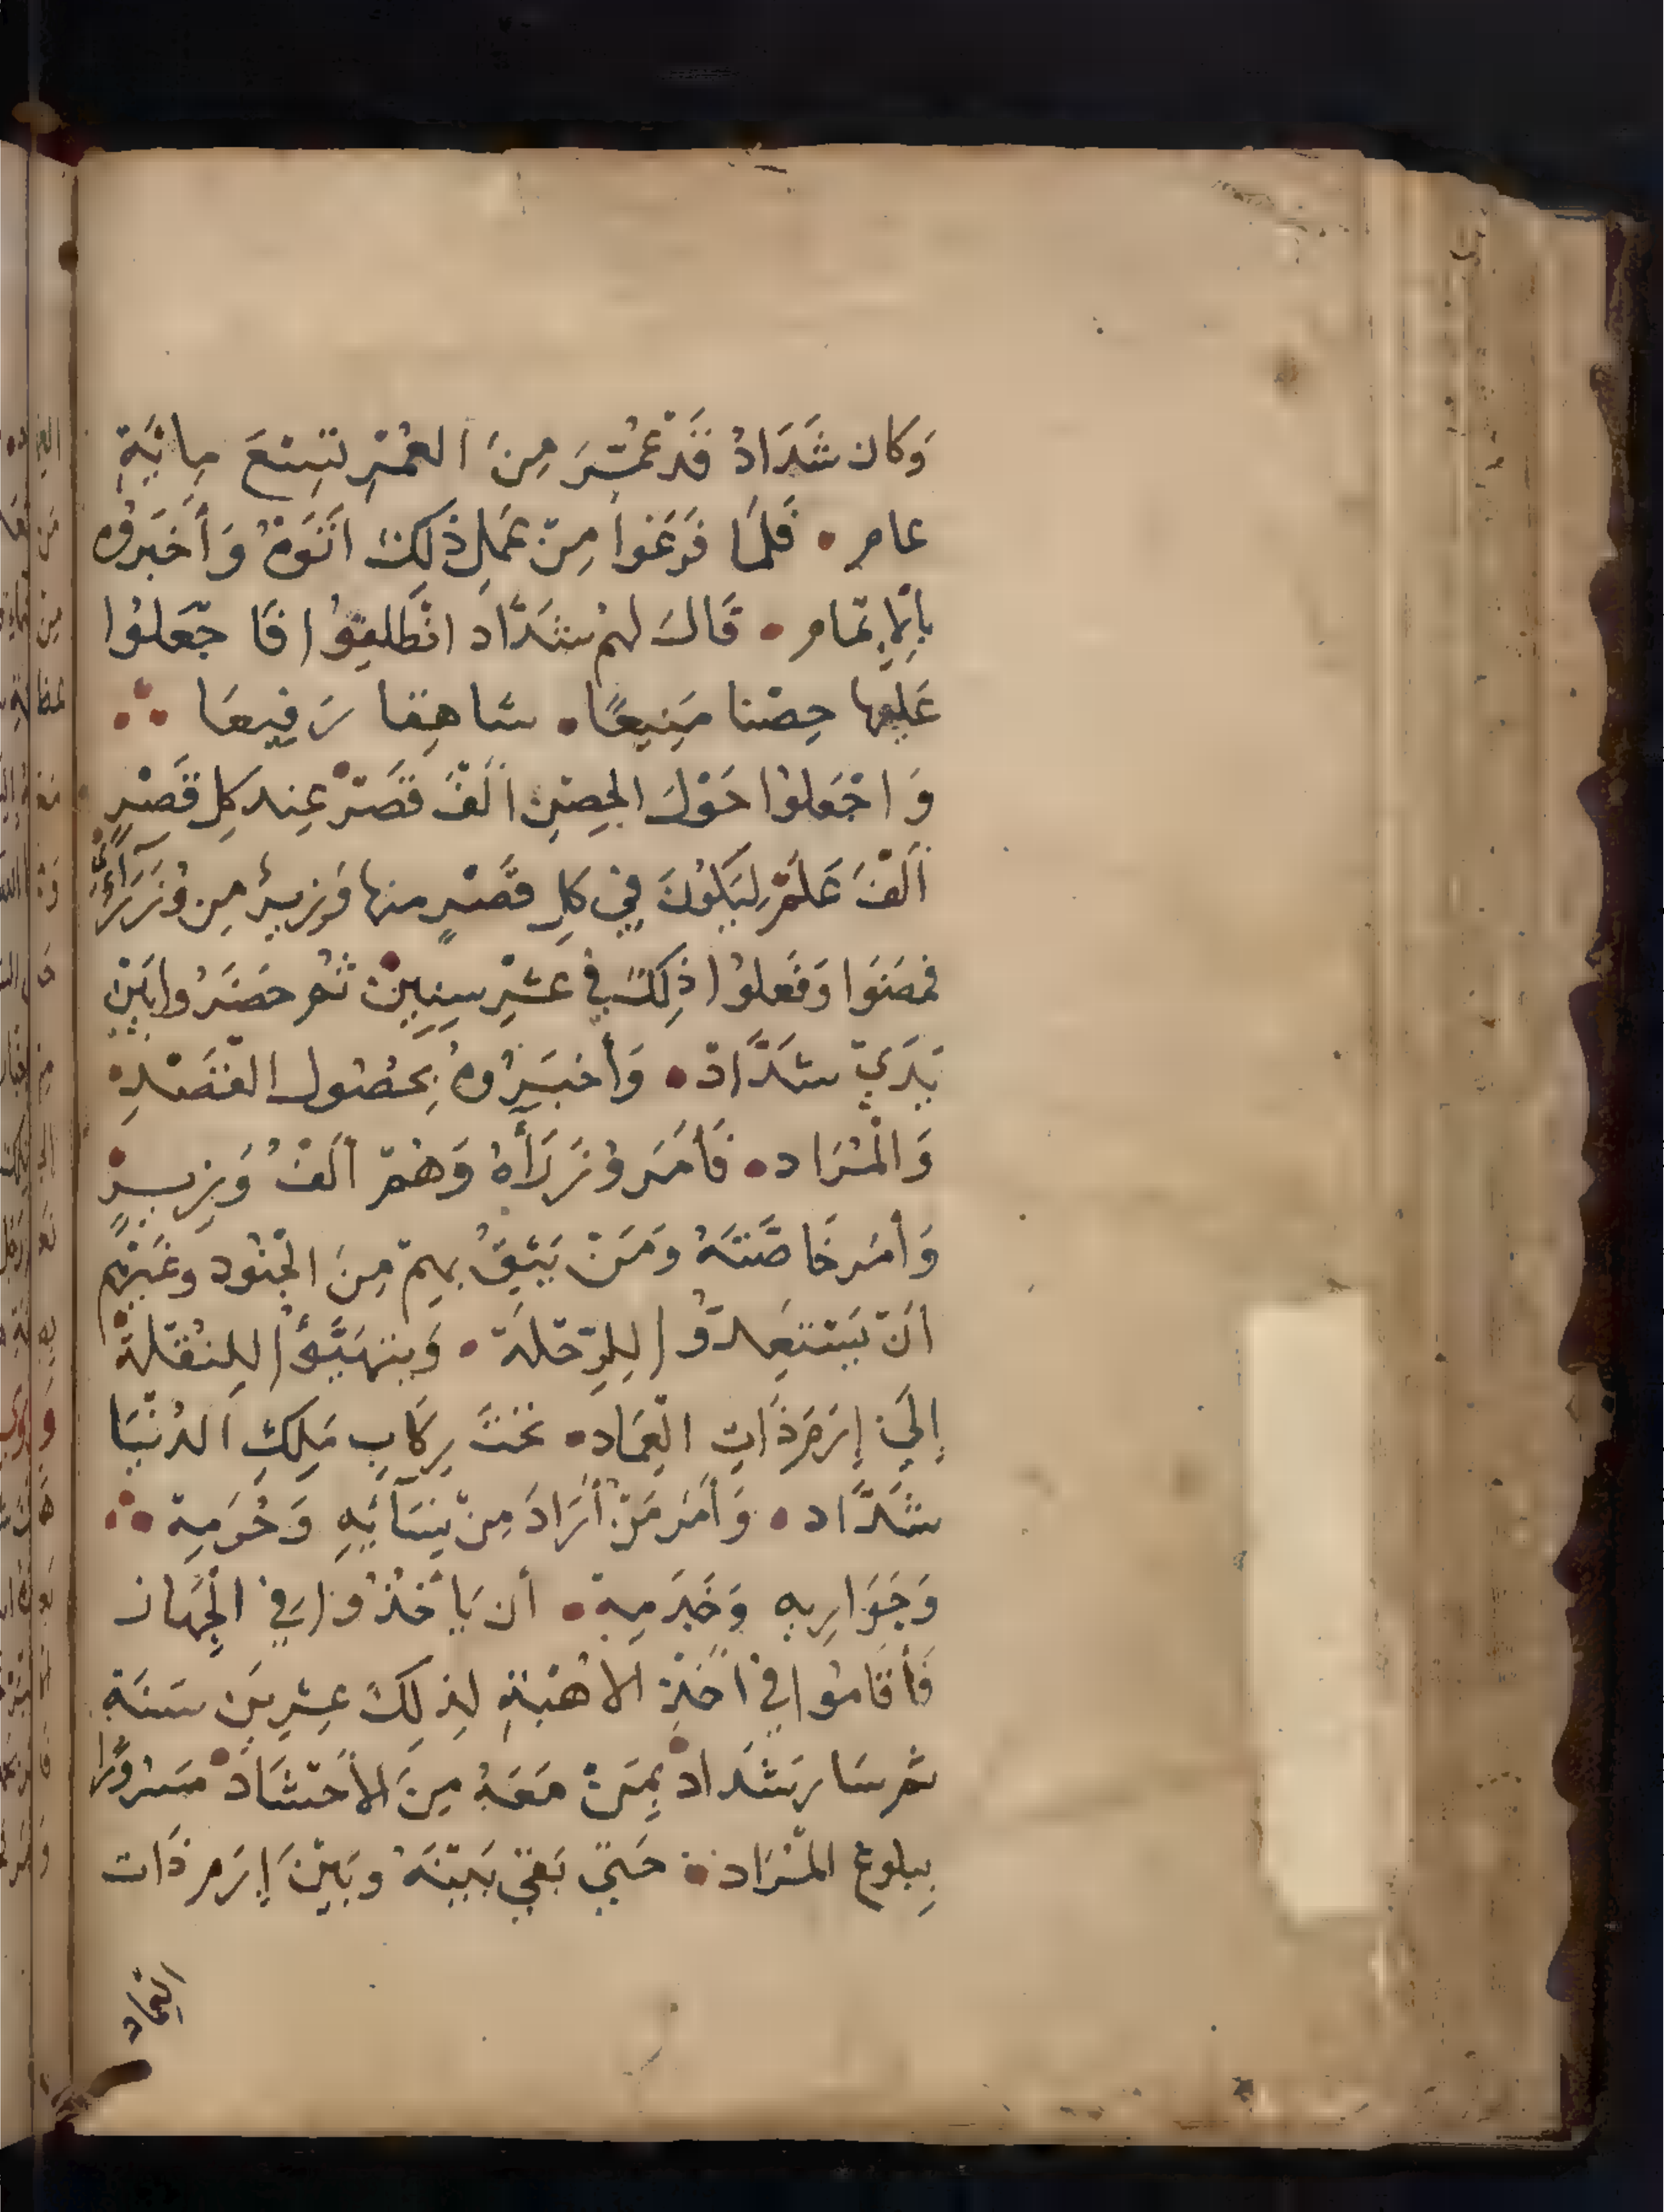 وَكان شَدَادُ قَدْ عُمِّرَ مِنَ العُمْرِ تِسْعَ مِائَةِ
عام • فَلَمَا فَرَغوا مِنْ عَمَلِ ذَلِكَ اتَوَهُ وَأَخبَروُه
بالإِتمام • قَالَ لهم شَدَّاد انْطَلِقوُا فَا جْعَلوُا
عَليها حِصْنا مَنِيعًا • شاهِقا رَفِيعَا ∴
وَاجْعَلوُا حَوْلَ الحِصْنِ أَلْفَ قَصْرْ عِند كلِ قَصْرٍ
أَلْفَ عَلَمْ لِيَكوُنَ فِي كلِ قَصْرٍ منها وَزِيرُ مِن وُزَرَآءِىَّ
فَمضَوَا وَفَعلوُا ذِلكَ في عَشْرِ سِنِينْ ثمُ حَضَرُوا بَيْن
يَدَيْ شَدَّادْ • وَأخبَرُوهُ بِحصُول القَصْدِ
وَالْمُرَاد • فَأَمَر وُزَرَأَهُ وَهُمْ أَلفُ وَزِيرْ
وَأمَر خَاصَّتَهُ وَمَنْ يَثِقُ بهِمْ مِنَ الجْنُود وغَيْرِهِم
أنْ يَسْتَعِدّوُا لِلرِّحْلَة • وَيتهَيَّؤُا للِنُقْلَةْ
إِلَيَ إِرَمَ ذَاتِ الْعِمَاد • تَحْتَ رِكَابِ مَلِكِ الدُنْيَا
شَدَّاد • وَأَمَر مَنْ أَرَادَ مِنْ نِسَآئِهِ وَحُرَمِهْ ∴
وَجَوَارِيه وَخَدَمِهْ • أن يَأخُذوُا في الْجِهَاز
فَأقَاموُا في أخَذِ الاُهْبَةِ لِذلِكَ عِشْرِينَ سَنَة
ثم سَار شَدَاد بِمَنْ مَعَهُ مِنَ الأحْتشَادْ مَسْروُرًا
بِبلوغ المُرَاد • حَتيَّ بَقيَ بَيْنَهُ وبَيْنَ إِرَم ذَات
العِمَاد